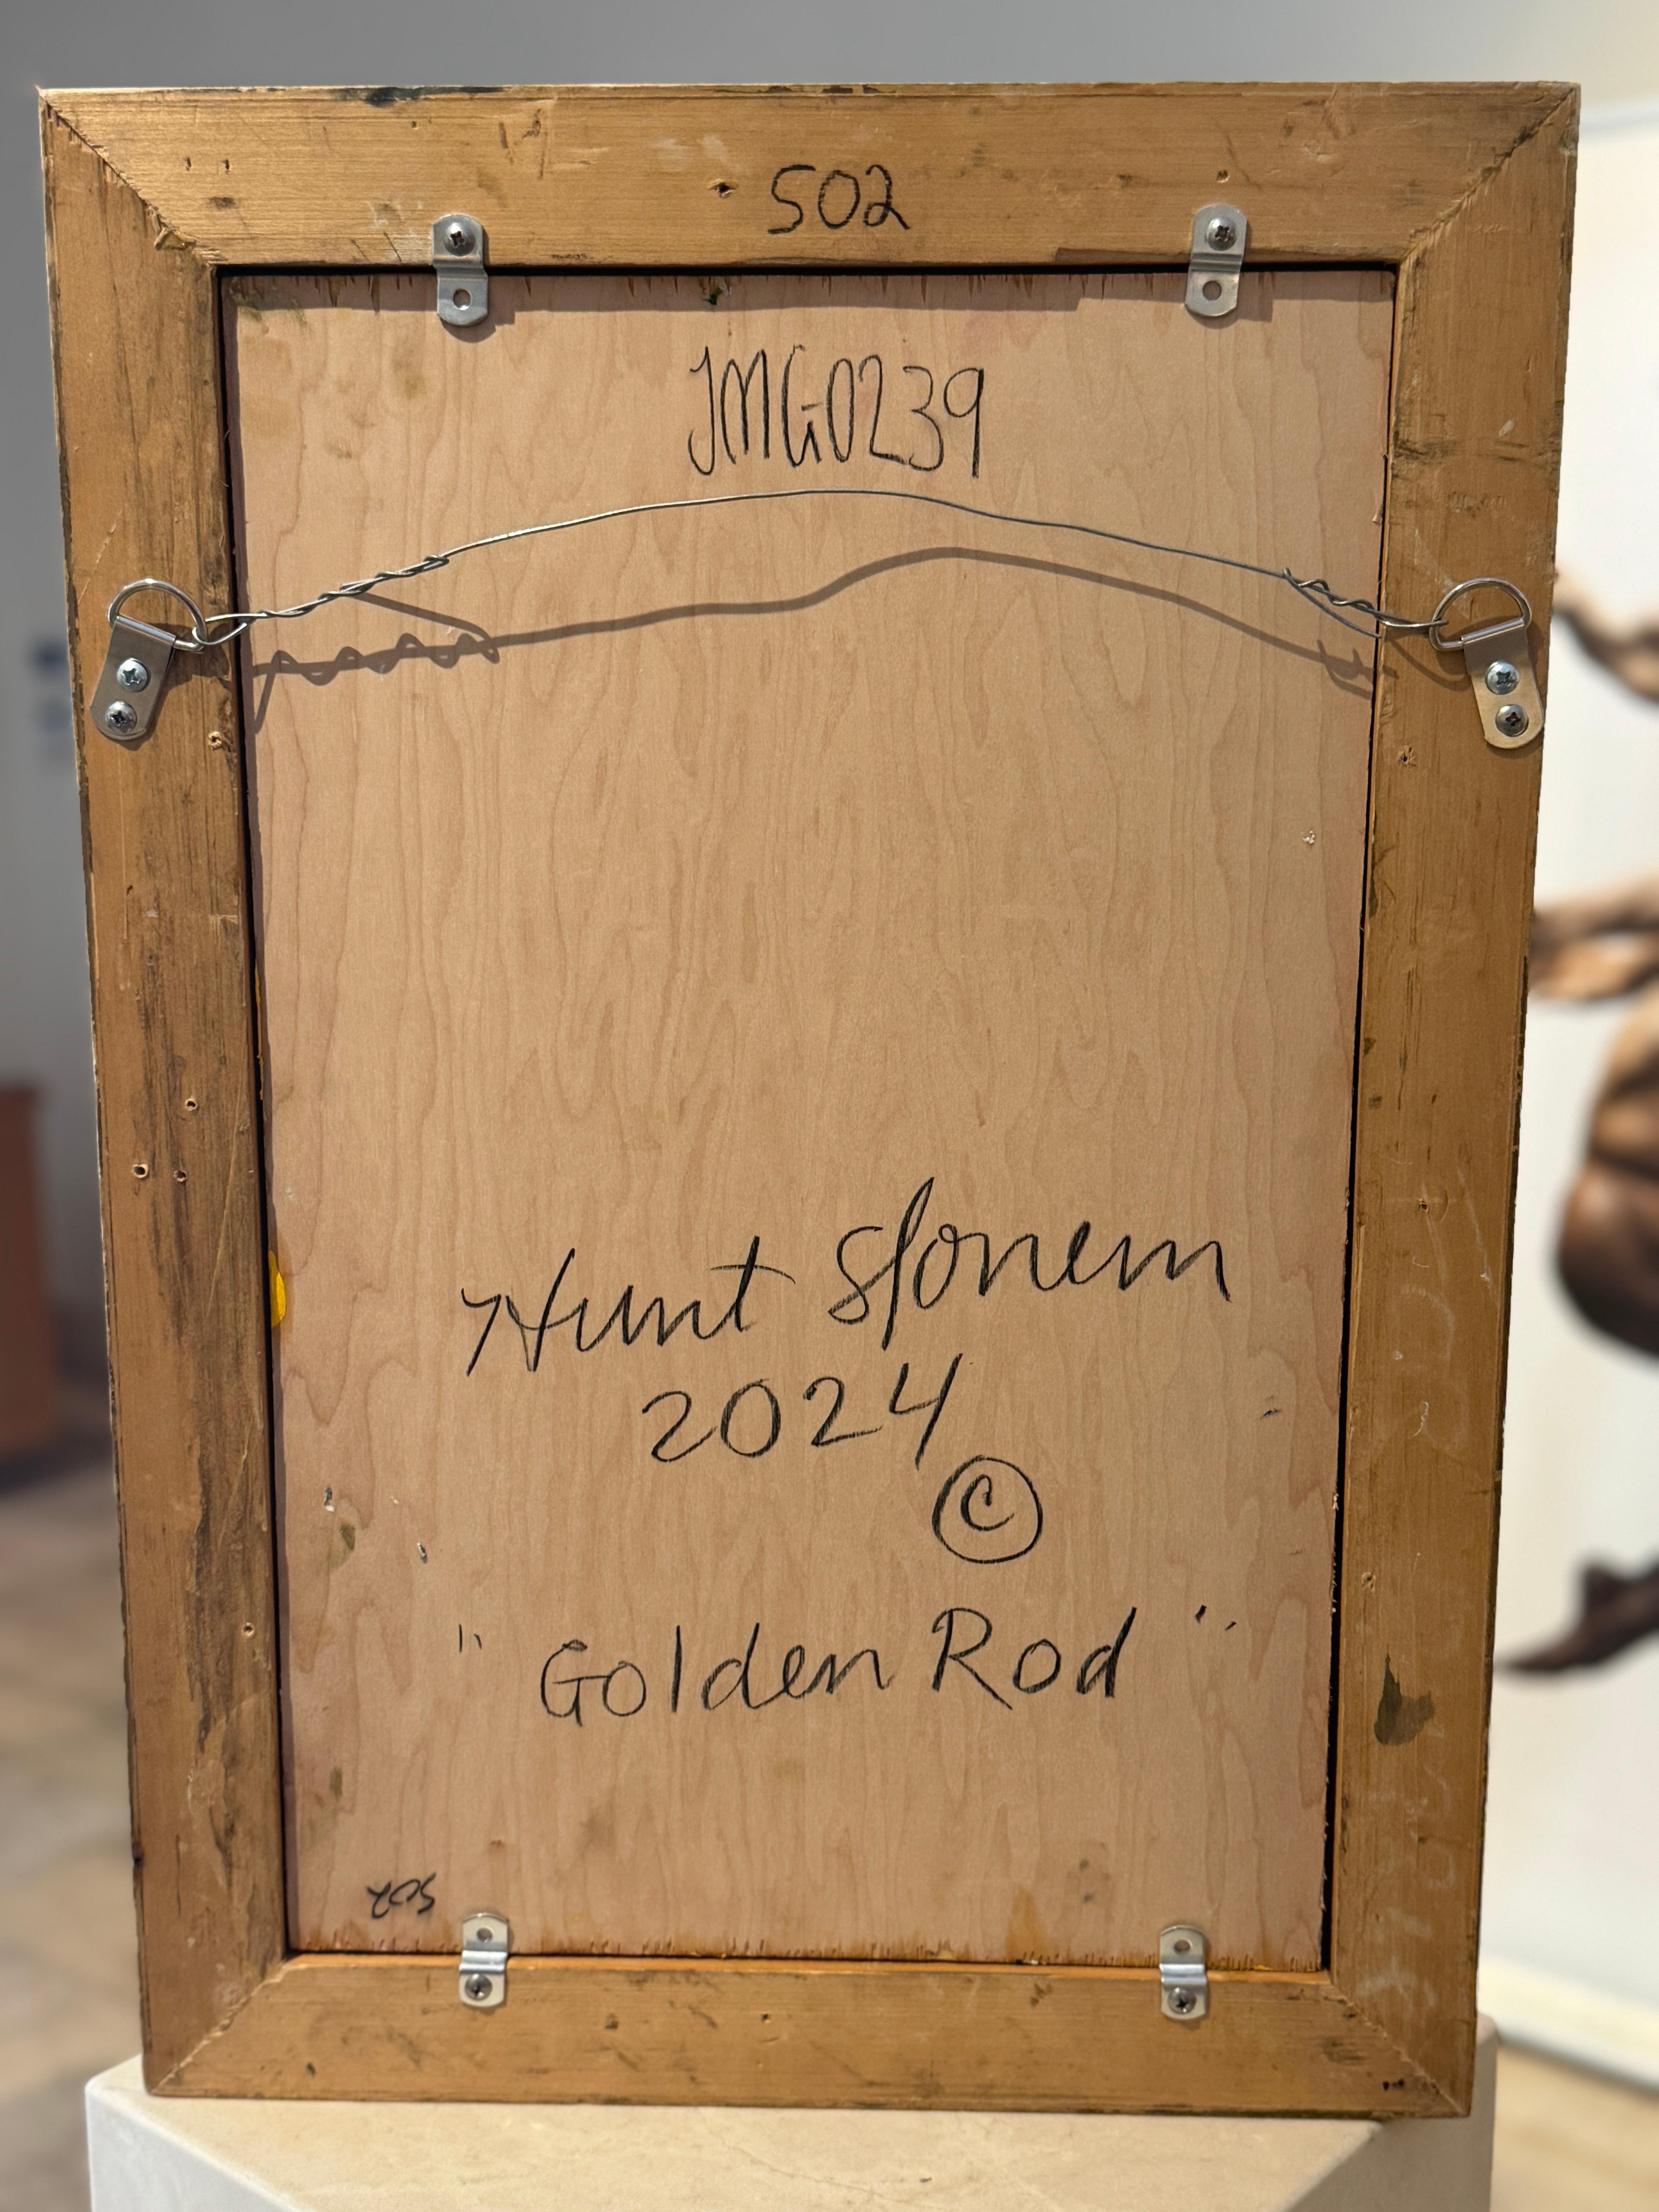 502
JMG0239
Hunt Slonem
2024
©
"Golden Rod"
502